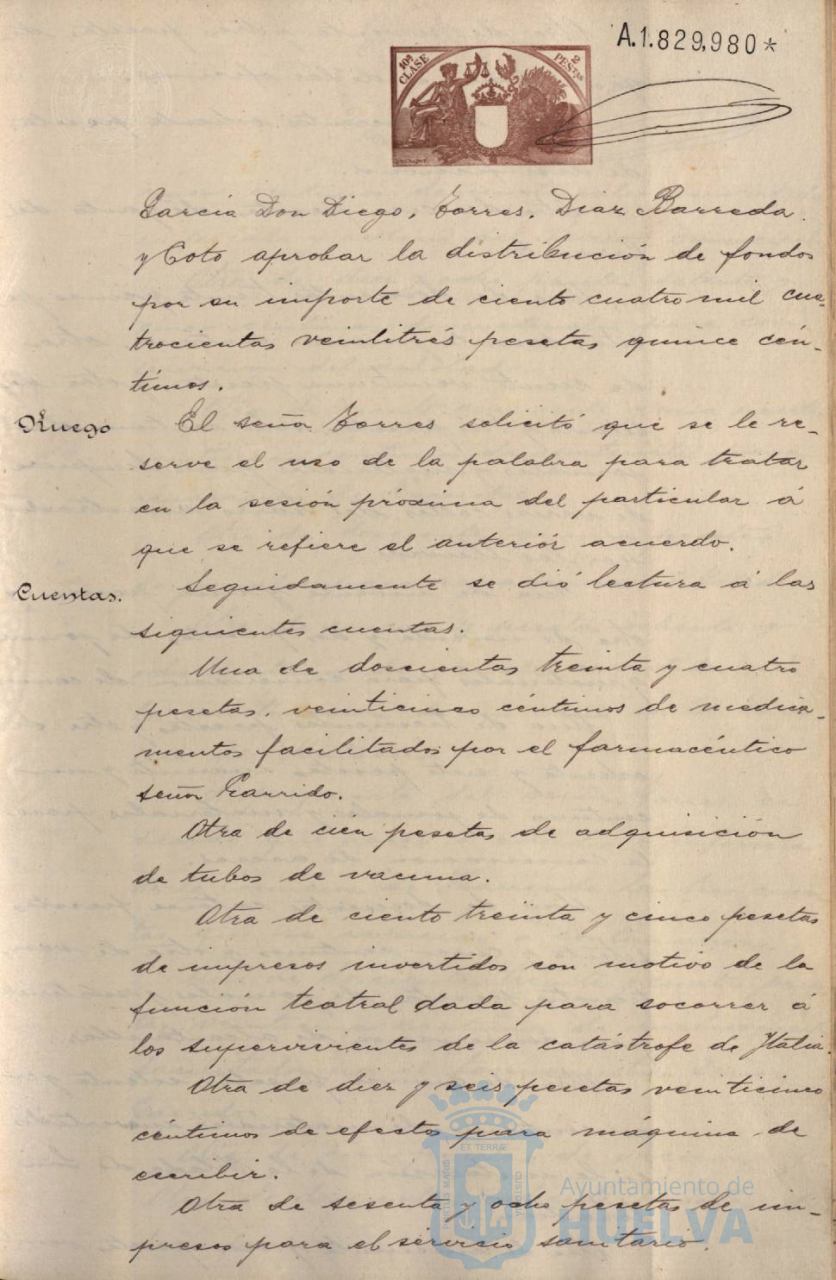 A.1.829,980*
10ª CLASE
2 PESTAS
García Don Diego, Torres, Diaz Barreda
y Coto aprobar la distribución de fondos
por su importe de ciento cuatro mil cua-
trocientas veintitrés pesetas quince cén-
timos.
Ruego
El señor Torres solicitó que se le re-
serve el uso de la palabra para tratar
en la sesión próxima del particular á
que se refiere el anteriór acuerdo.
Cuentas.
Seguidamente se dió lectura á las
siguientes cuentas.
Una de doscientas treinta y cuatro
pesetas, veinticinco céntimos de medica-
mentos facilitados por el farmacéutico
señor Garrido.
Otra de cién pesetas de adquisición
de tubos de vacuna.
Otra de ciento treinta y cinco pesetas
de impresos invertidos con motivo de la
función teatral dada para socorrer á
los supervivientes de la catástrofe de Italia.
Otra de diez y seis pesetas veinticinco
céntimos de efectos para máquina de
escribir.
Otra de sesenta y ocho pesetas de im-
presos para el servicio sanitario.
Ayuntamiento de
HUELVA